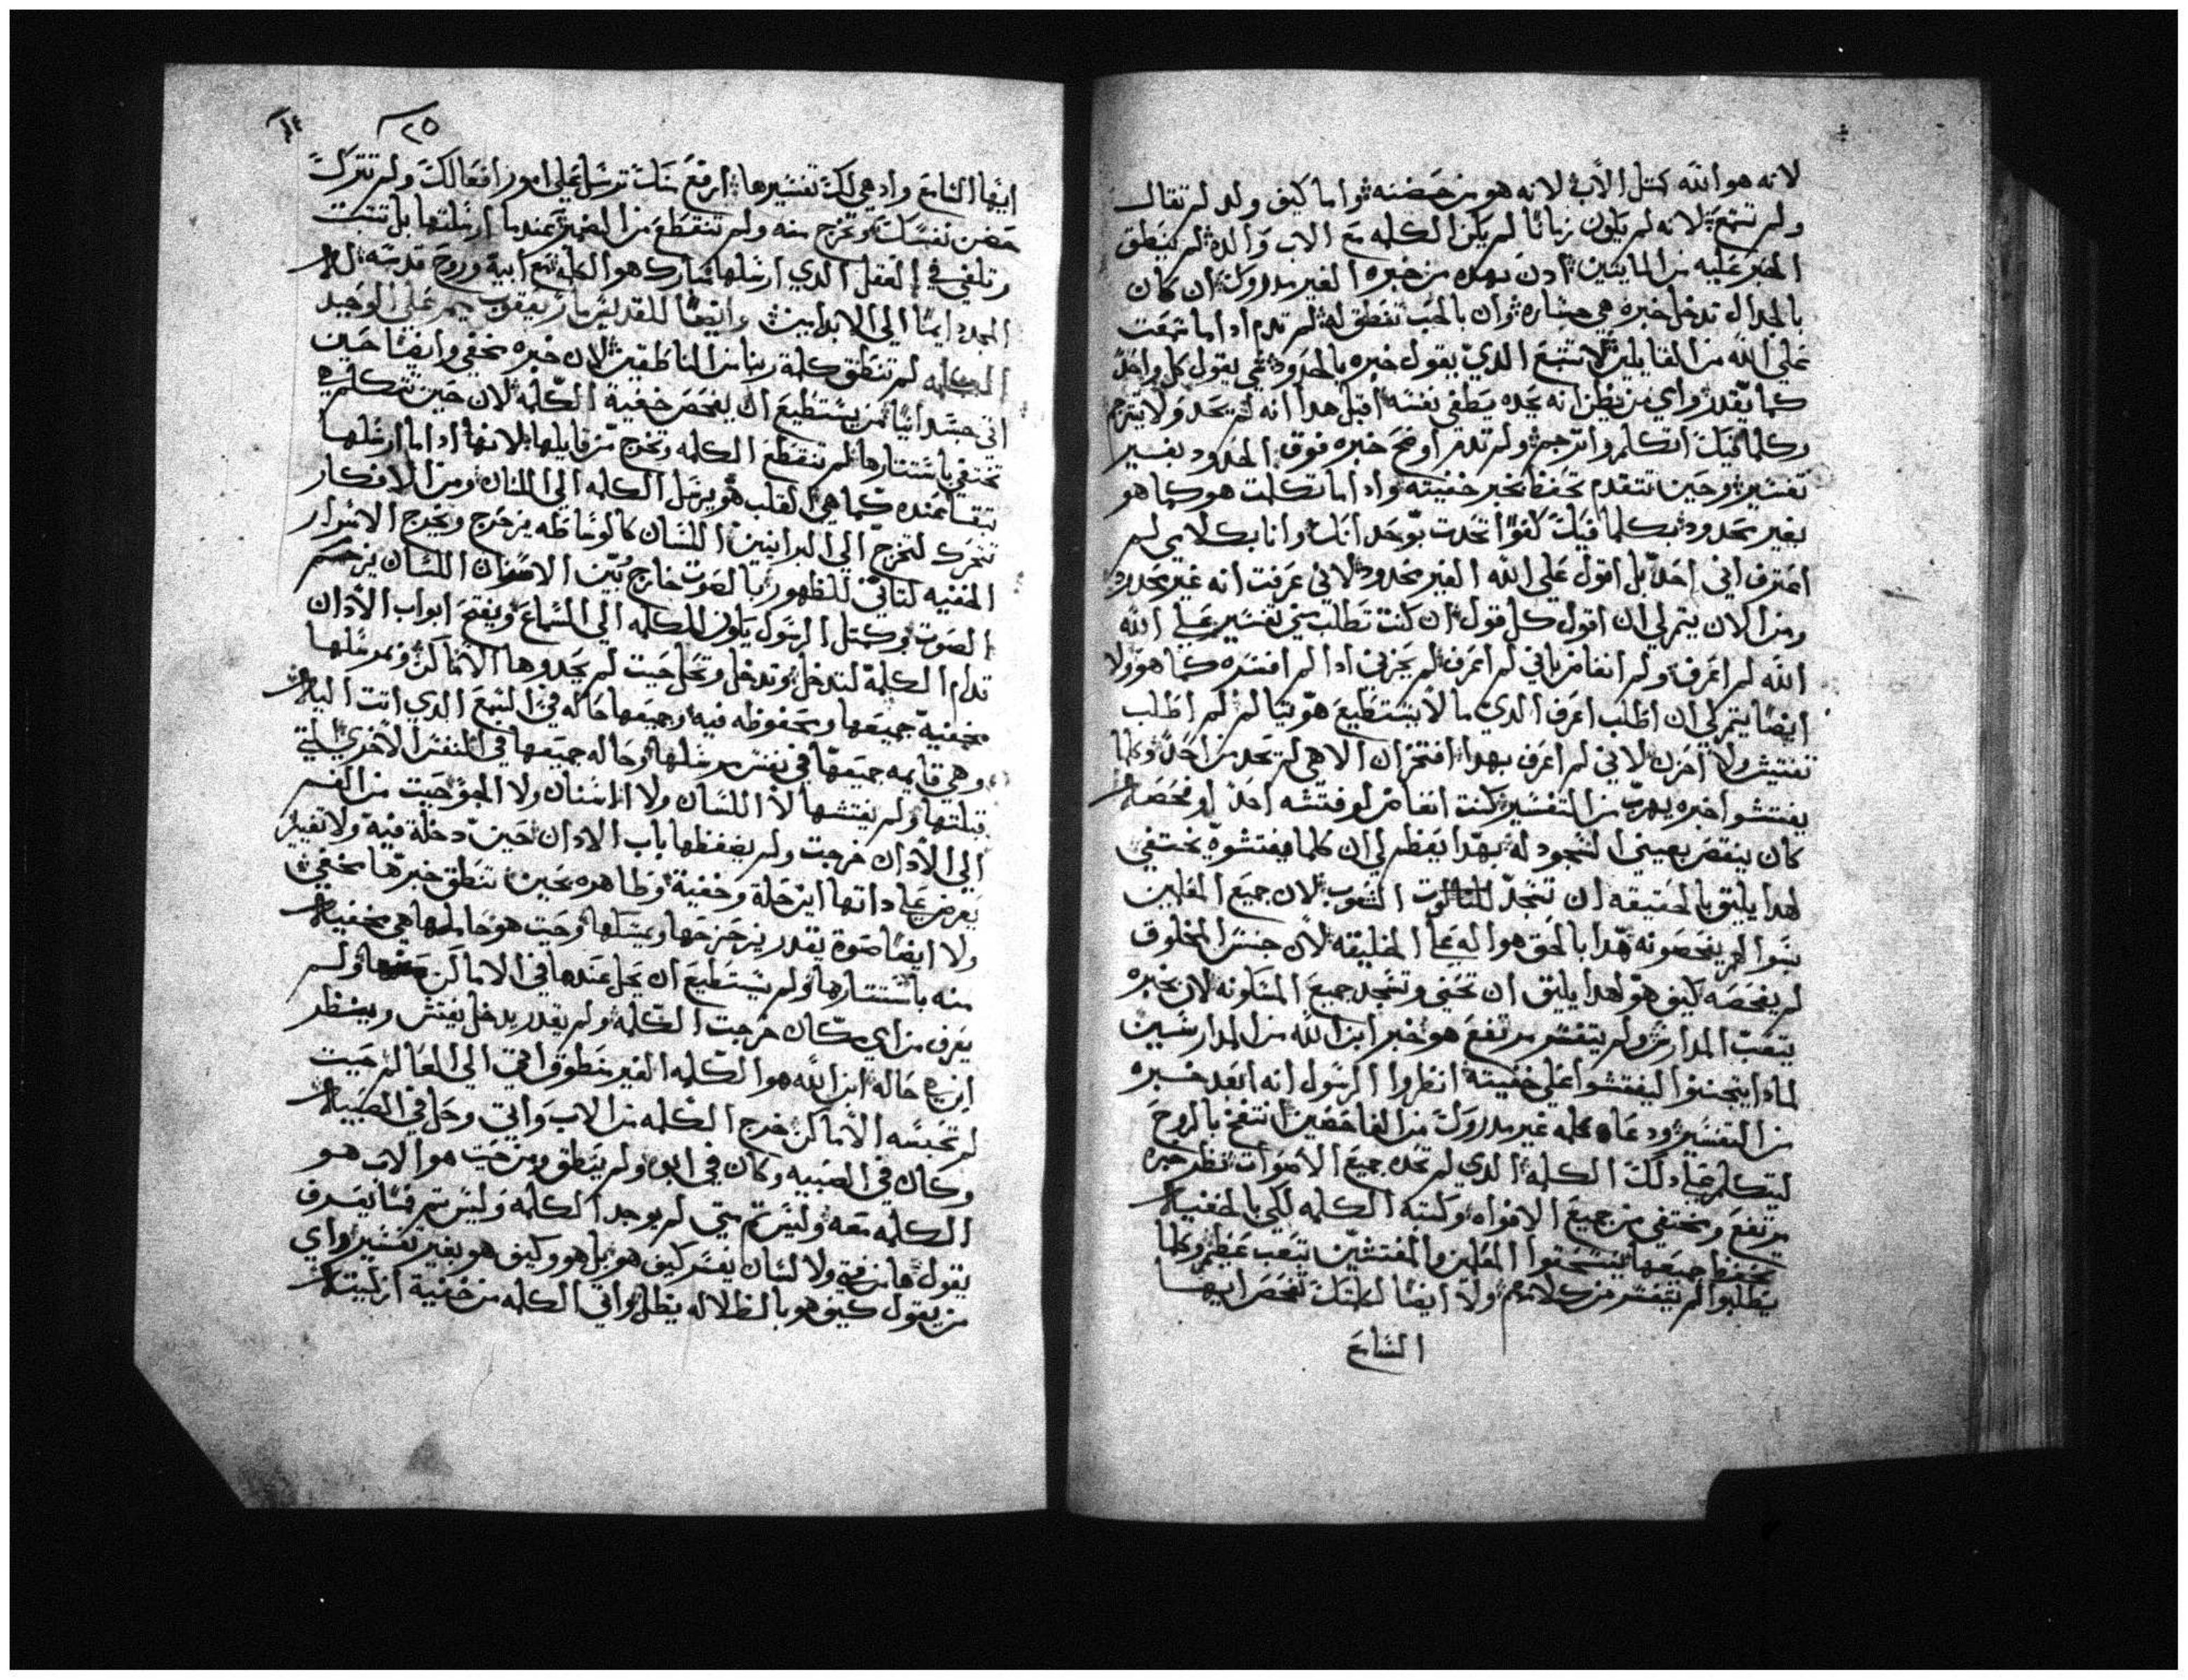 لانه هو الله كمثل الاب لانه هو من حضنه واما كيف ولد لم تقال
ولم تسمع لانه لم يكون زمانا لم يكن الكلمه مع الاب والده لم ينطق
الخبر عليه من المايتين ادن بهده من خبره الغير مدروك ان كان
بالجدال تدخل خبره هي خساره وان بالحب تنطق له لم تدم اد اما سمعت
على الله من القايلين لا تتبع الدي يقول خبره بالحدود يقول كل واحد
كما يقدر واي من يظن انه يحده يطفي نفسه اقبل هدا انه لم يحد ولا يترجم
وكلما فيك اتكلم واترجم ولم تدم اوضح خبره فوق الحدود بغير
تفسير وحين تتقدم تحفظ بخبر خفيته واد اما تكلمت هو كما هو
بغير محدود بكلما فيك كفوا تحدت بوحدانك وانا بكلامي لم
اعترف اني احد بل اقول على الله الغير محدود لاني عرفت انه غير محدود
ومن الان يتم لي ان اقول كل قول ان كنت تطلب مني تفسير على الله
الله لم اعرف ولم انغامر باني لم اعرف لم يحزني ادا لم افسره كما هو ولا
ايضا يتم لي ان اطلب اعرف الدي ما لا يستطيع هو لم اطلب
تفتيش ولا احزن لاني لم اعرف بهدا افتخر ان الاهي لم تحد من احد وكلما
يفتشوا خبره يهرب من التفسير كنت لو فتشه احد او فحصه
كان ينقص بعيني السجود له بهدا يعظم لي ان كلما يفتشوه يختفي
لهدا يليق بالحقيقه ان تسجد للتالوت الشعوب لان جميع العالمين
بنوا لم يفحصونه هدا بالحق هو اله على الخليقه لان جنس المخلوق
لم يفحصه كيف هو لهدا يليق ان تحني وتسجد جميع المسكونه لان بخبره
يتعب المدارش ولم يتفسر مرتفع هو خبر ابن الله من المدارسين
لمادا يتجننوا ليفتشوا على خفيته انظروا الرسول انه ابعد خبره
من التفسير ودعاه كلمه غير مدروك من الفاحصين انتفخ بالروح
ليتكلم على دلك الكلمه الدي لم تحده جميع الاصوات نظر خبره
مرتفع ومختفي من جميع الافواه وكتبه الكلمه لكي بالخفيه
يحفظ جميعها المفتشين بتعب عظيم وكلما
يطلبوا لم يتفسر من كلامهم ولا ايضا لكلمتك تفحص ايها
السامع
٢٥
ايها السامع واد هي لك تفسيرها ارفع بناتك ترسل على امور افعالك ولم تترك
حضن نفسك وتخرج منه ولم تنقطع من الضمير عندما ارسلتها بل تتبت
وتلفي في العقل الدي ارسلها مبارك هو الكلمه مع ابيه وروح قدسه له
المجد دايما الي الابد امين وايضا للقديس مار يعقوب ميمر على الوحيد
الكلمه لم تنطق كلمة ربنا من الناطقين لان خبره مخفي وايضا حين
اتى جسدانيا من يستطيع ان يفحص خفية الكلمه لان حين تتكلم
تختفي باستتارها لم تنقطع الكلمه وتخرج من قايلها لانها اداما ارسلها
تبقا عنده كما هي القلب هو يرسل الكلمه الي اللسان ومن الافكار
تتحرك لتخرج الي البرانيين اللسان كالوساطه يزحزح ويخرج الاسرار
المخفيه لتاتي للظهور بالصوت خارج بين الاسنان اللسان يرسم
الصوت وكمثل الرسول يكون للكلمه الي السماع ويفتح ابواب الادان
قدام الكلمه لتدخل وتدخل وتحل حيت لم يحدوها الاماكن وبمرسلها
مخفيه جميعها ومحفوظه فيه وجميعها حاله في السمع الدي اتت اليه
وهي قايمه جميعها في نفس مرسلها وحاله جميعها في النفس الاخري التي
قبلتها ولم يفتشها لا اللسان ولا الاسنان ولا الجو حيت من الفم
الي الادان خرجت ولم يضغطها باب الادان حين دخلة فيه ولا تغير
يعرض على داتها اين حلة وخفية وظاهره بحين تنطق خبرها مخفي
ولا ايضا صوة يقدر يزحزحها ويمسكها وحيت هو حاملها هي مخفيه
منه باستتارها ولم يستطيع ان يحل عندها في الاماكن ولم
يعرف من اي مكان خرجت الكلمه ولم يقدر يدخل يفتش وينظر
اين هي حاله ابن الله هو الكلمه الغير منطوق اتي الي العالم حيت
لم تحبسه الاماكن خرج الكلمه من الاب واتي وحل في الصبيه
وكان في الصبيه وكان في ابوه ولم ينطق ومن حيت هو الاب هو
الكلمه معه وليس تم متي لم يوجد الكلمه وليس تم فما يعرف
يقول ها من فيه ولا لسان يفسر كيف هو بل هو وكيف هو بغير تفسير واي
من يقول كيف هو بالظلاله يظل واتي الكلمه من خفية ازليته